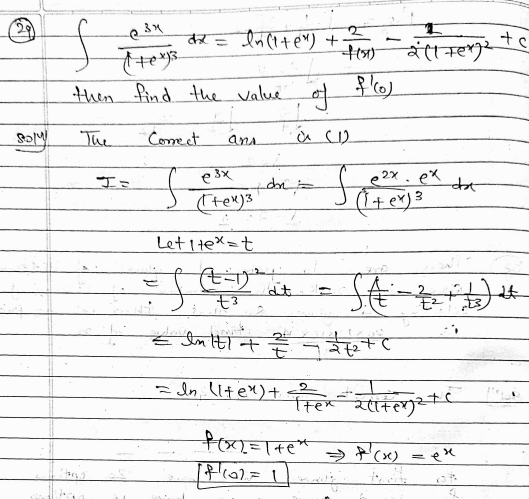 29) ∫ e^3x/(1+e^x)^3 dx = ln(1+e^x) + 2/f(x) - 1/2(1+e^x)^2 + c
then find the value of f'(0)
Sol^n The Correct ans is (1)
I = ∫ e^3x/(1+e^x)^3 dx = ∫ e^2x . e^x/(1+e^x)^3 dx
Let 1+e^x = t
= ∫ (t-1)^2/t^3 dt = ∫ (1/t - 2/t^2 + 1/t^3) dt
= ln|t| + 2/t - 1/2t^2 + c
= ln (1+e^x) + 2/1+e^x - 1/2(1+e^x)^2 + c
f(x) = 1+e^x ⇒ f'(x) = e^x
f'(0) = 1